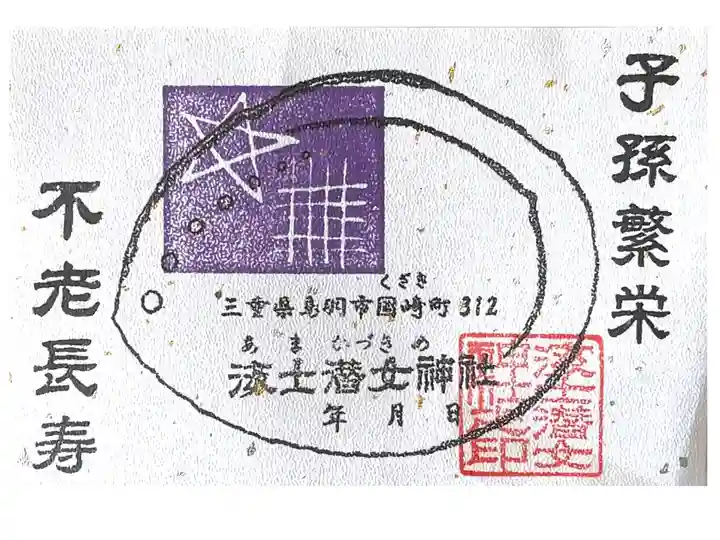 子孫繁栄
不老長寿
くざき
三重県鳥羽市国崎町312
あま かづきめ
海士潜女神社
年 月 日
海士潜女
神社之印